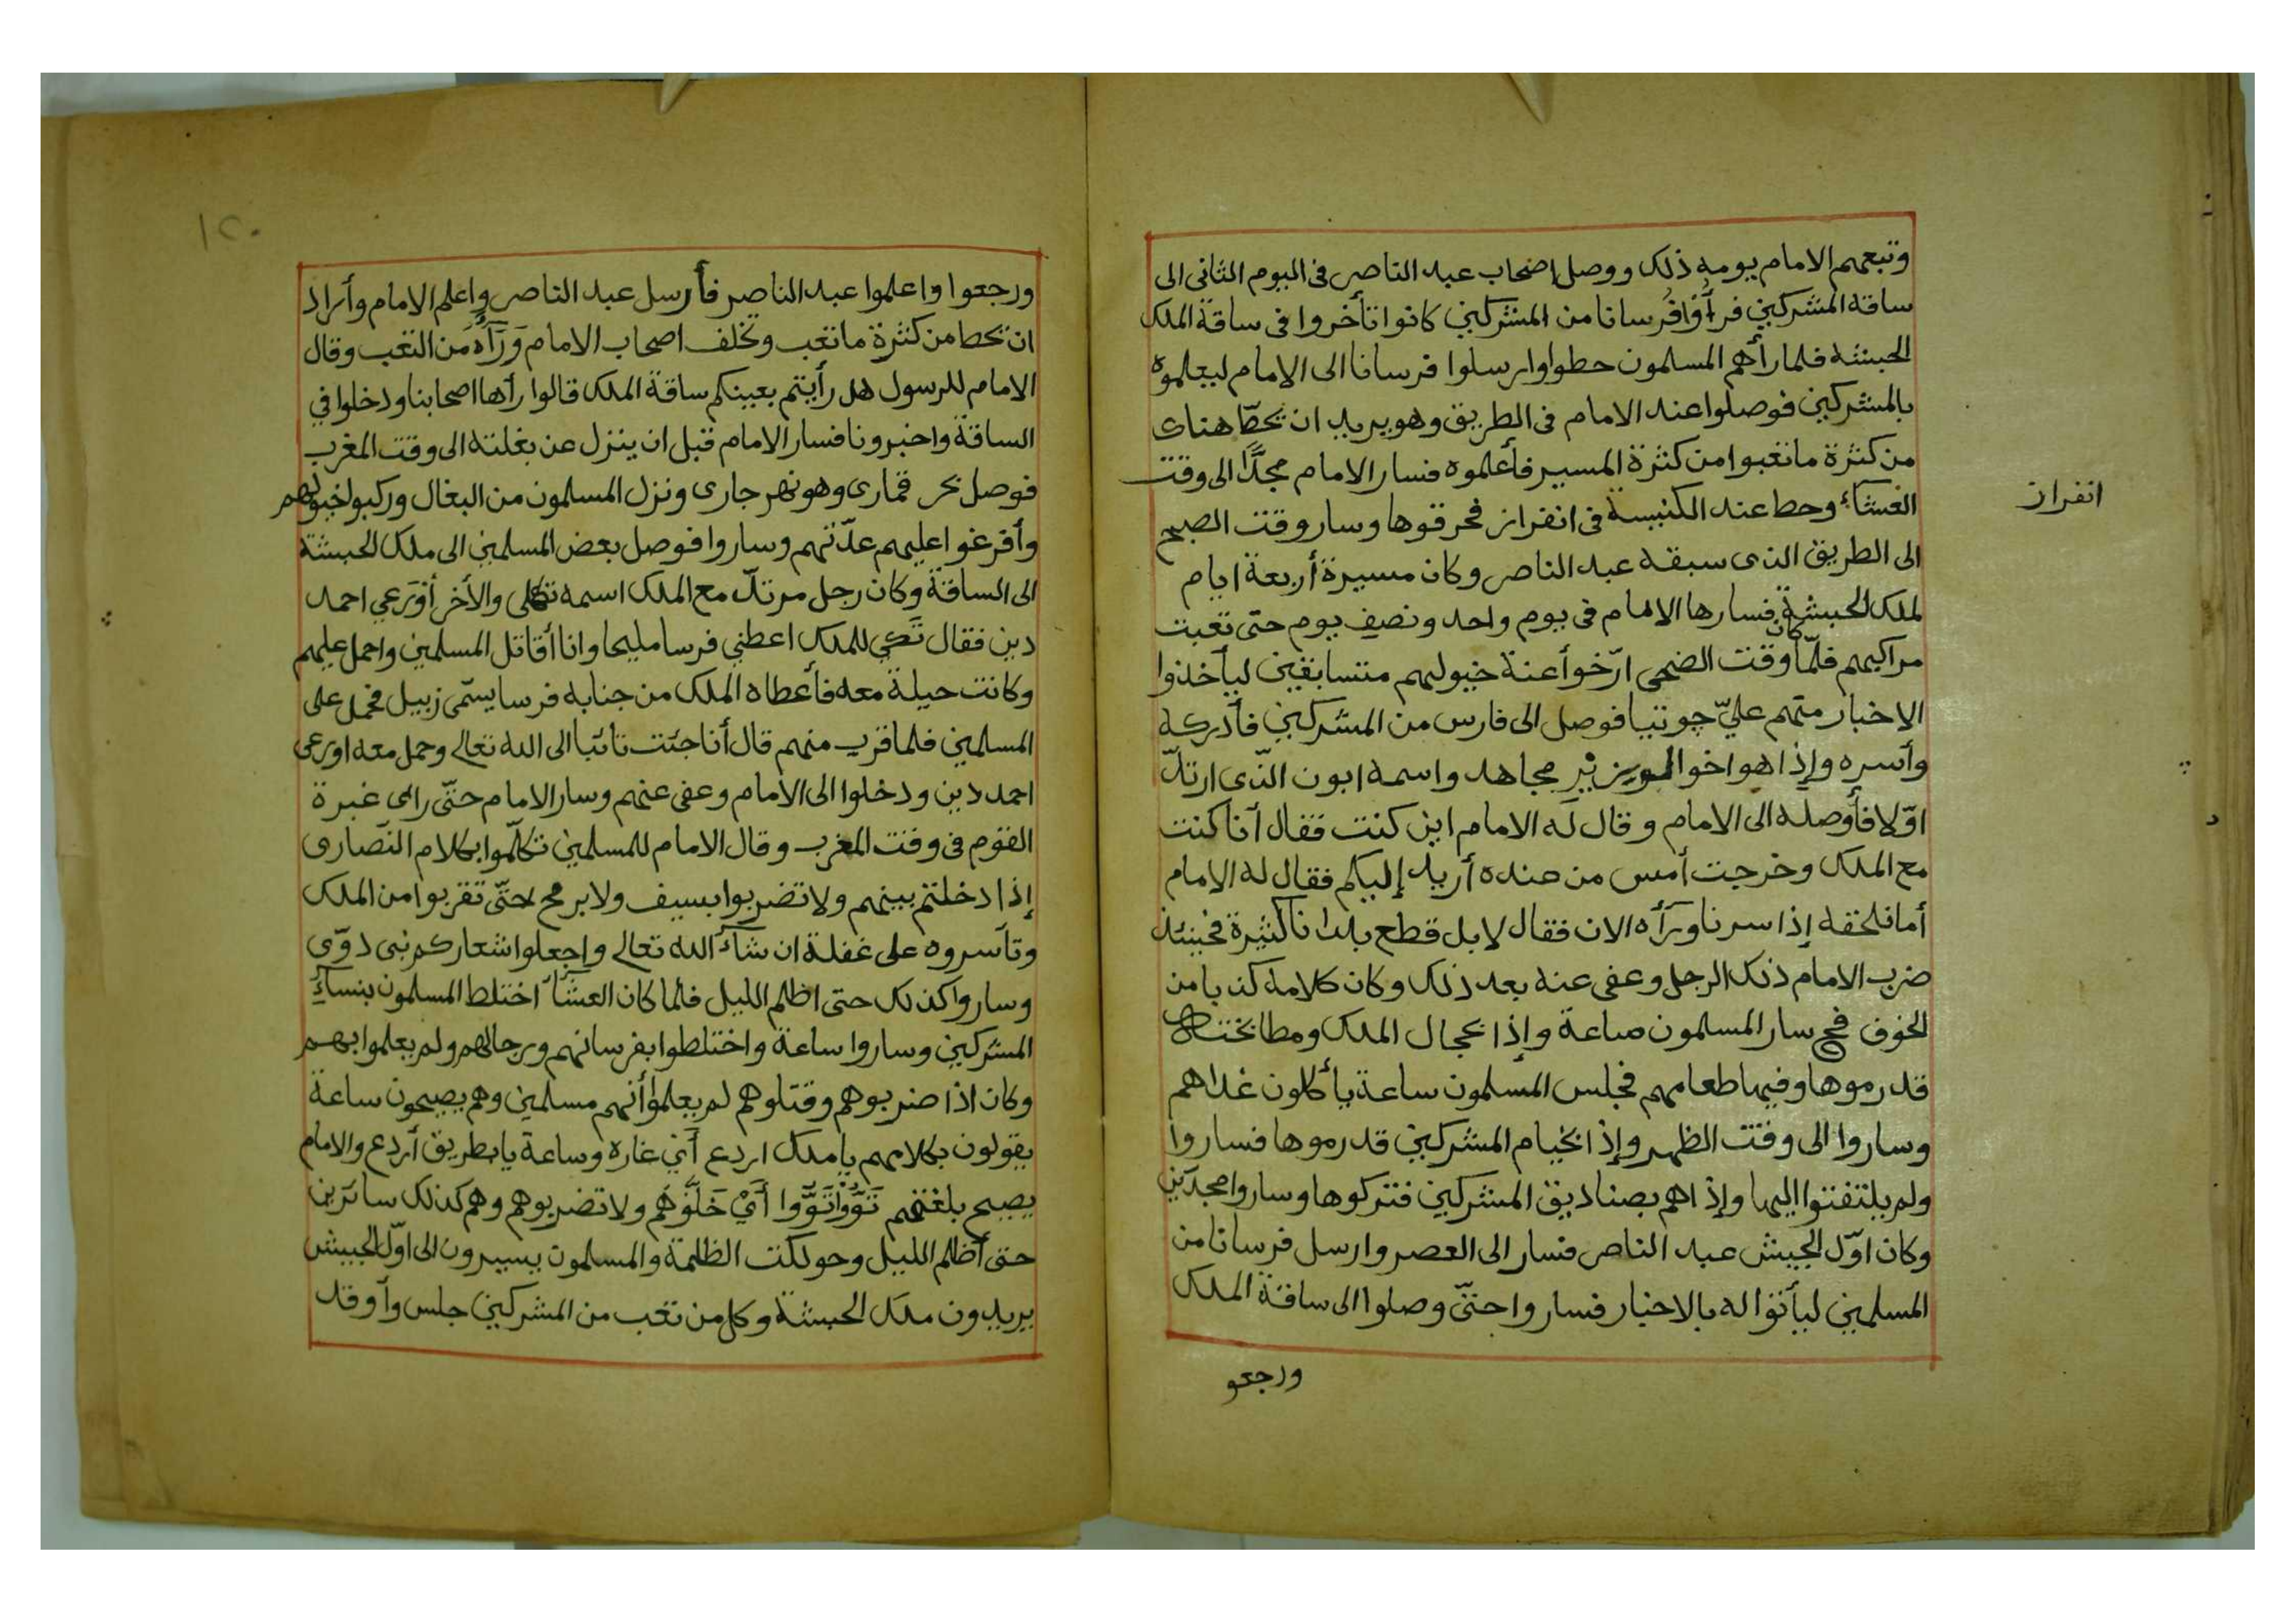 وتبعهم الامام يومه ذلك ووصل اصحاب عبد الناصر في اليوم الثاني الى
ساقة المشركين فرأوا فرسانا من المشركين كانوا تأخروا في ساقة الملك
الحبشة فلما رأهم المسلمون حطوا وارسلوا فرسانا الى الامام ليعلموه
بالمشركين فوصلوا عند الامام في الطريق وهو يريد ان يحطّ هناك
من كثرة ما تعبوا من كثرة المسير فأعلموه فسار الامام مجدًّا الى وقت
العشاء وحط عند الكنيسة في انفراز فحرقوها وسار وقت الصبح
انفراز
الى الطريق الذى سبقه عبد الناصر وكان مسيرة أربعة ايام
لملك الحبشة فسارها الامام في يوم واحد ونصف يوم حتى تعبت
مراكبهم فلمّا كان وقت الضحى ارّخوا أعنة خيولهم متسابقين ليأخذوا
الاخبار منهم عليّ جوتيا فوصل الى فارس من المشركين فأدركه
وأسره وإذا هو اخوا الوزير مجاهد واسمه ابون الذّى ارتدّ
اوّلا فأوصله الى الامام وقال له الامام اين كنت فقال أنا كنت
مع الملك وخرجت أمس من عنده أريد إليكم فقال له الامام
أما نلحقه إذا سرنا ورآه الان فقال لا بل قطع بلدانا كثيرة فحينئذ
ضرب الامام ذلك الرجل وعفى عنه بعد ذلك وكان كلامه كذبا من
الخوف فح سار المسلمون ساعة وإذا بحجال الملك ومطابخته
قد رموها وفيها طعامهم فجلس المسلمون ساعة يأكلون غداهم
وساروا الى وقت الظهر وإذا بخيام المشركين قد رموها فساروا
ولم يلتفتوا اليها وإذا هم بصناديق المشركين فتركوها وساروا مجدّين
وكان اوّل الجيش عبد الناصر فسار الى العصر وارسل فرسانا من
المسلمين ليأتوا له بالاخبار فساروا حتّى وصلوا الى ساقة الملك
ورجعو
١٢٠
ورجعوا واعلموا عبد الناصر فأرسل عبد الناصر واعلم الامام وأراد
ان يحط من كثرة ما تعب وتخلف اصحاب الامام وَرَآءَهُ من التعب وقال
الامام للرسول هل رأيتم بعينكم ساقة الملك قالوا رأها اصحابنا ودخلوا في
الساقة واخبرونا فسار الامام قبل ان ينزل عن بغلته الى وقت المغرب
فوصل بحر قمارى وهو نهر جارى ونزل المسلمون من البغال وركبوا خيولهم
وأفرغوا عليهم عدّتهم وساروا فوصل بعض المسلمين الى ملك الحبشة
الى الساقة وكان رجل مرتدّ مع الملك اسمه تكلى والأخر أوْرَعي احمد
دين فقال تَكلي للملك اعطني فرسا مليحا وانا أقاتل المسلمين واحمل عليهم
وكانت حيلة معه فأعطاه الملك من جنابه فرسا يسمّى زبيل فحمل على
المسلمين فلما قرب منهم قال أنا جئت تائبا الى الله تعالى وحمل معه اورعى
احمد دين ودخلوا الى الامام وعفى عنهم وسار الامام حتّى رأى غبرة
القوم في وقت المغرب وقال الامام للمسلمين تكلّموا بكلام النّصارى
إذا دخلتم بينهم ولا تضربوا بسيف ولا برمح حتّى تقربوا من الملك
وتأسروه على غفلة ان شآء الله تعالى واجعلوا شعاركم نبى دوّى
وساروا كذلك حتى اظلم الليل فلما كان العشآء اختلط المسلمون بنسآءِ
المشركين وساروا ساعة واختلطوا بفرسانهم ورجالهم ولم يعلموا بهم
وكان اذا ضربوهم وقتلوهم لم يعلموا أنهم مسلمين وهم يصيحون ساعة
يقولون بكلامهم يا ملك اردع أَيْ غاره وساعة يا بطريق أردع والامام
يصيح بلغتهم تَوُّواتَوُّوا أَيْ خَلُّوهُم ولا تضربوهم وهم كذلك سائرين
حتى أظلم الليل وحولكت الظلمة والمسلمون يسيرون الى اوّل الجيش
يريدون ملك الحبشة وكل من تعب من المشركين جلس وأوقد